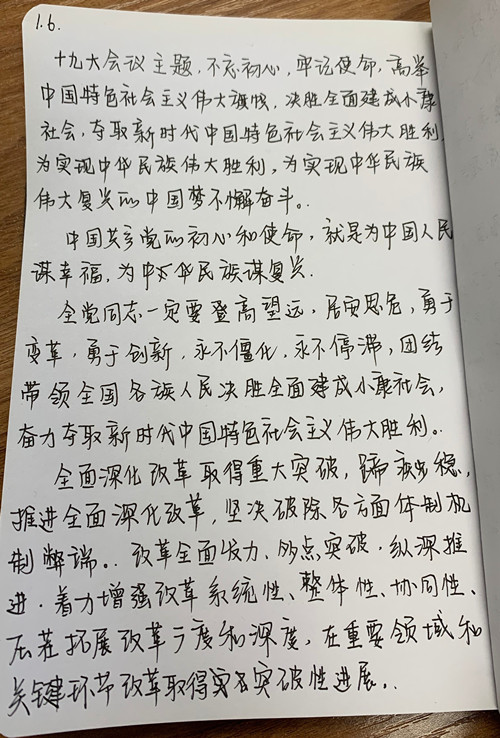 1.6.
十九大会议主题,不忘初心,牢记使命,高举
中国特色社会主义伟大旗帜,决胜全面建成小康
社会,夺取新时代中国特色社会主义伟大胜利,
为实现中华民族伟大胜利,为实现中华民族
伟大复兴的中国梦不懈奋斗。
中国共产党的初心和使命,就是为中国人民
谋幸福,为中华民族谋复兴.
全党同志一定要登高望远,居安思危,勇于
变革,勇于创新,永不僵化,永不停滞,团结
带领全国各族人民决胜全面建成小康社会,
奋力夺取新时代中国特色社会主义伟大胜利。
全面深化改革取得重大突破,蹄疾步稳,
推进全面深化改革,坚决破除各方面体制机
制弊端。改革全面发力、多点突破.纵深推
进.着力增强改革系统性、整体性、协同性、
压茬拓展改革广度和深度,在重要领域和
关键环节改革取得突破性进展.